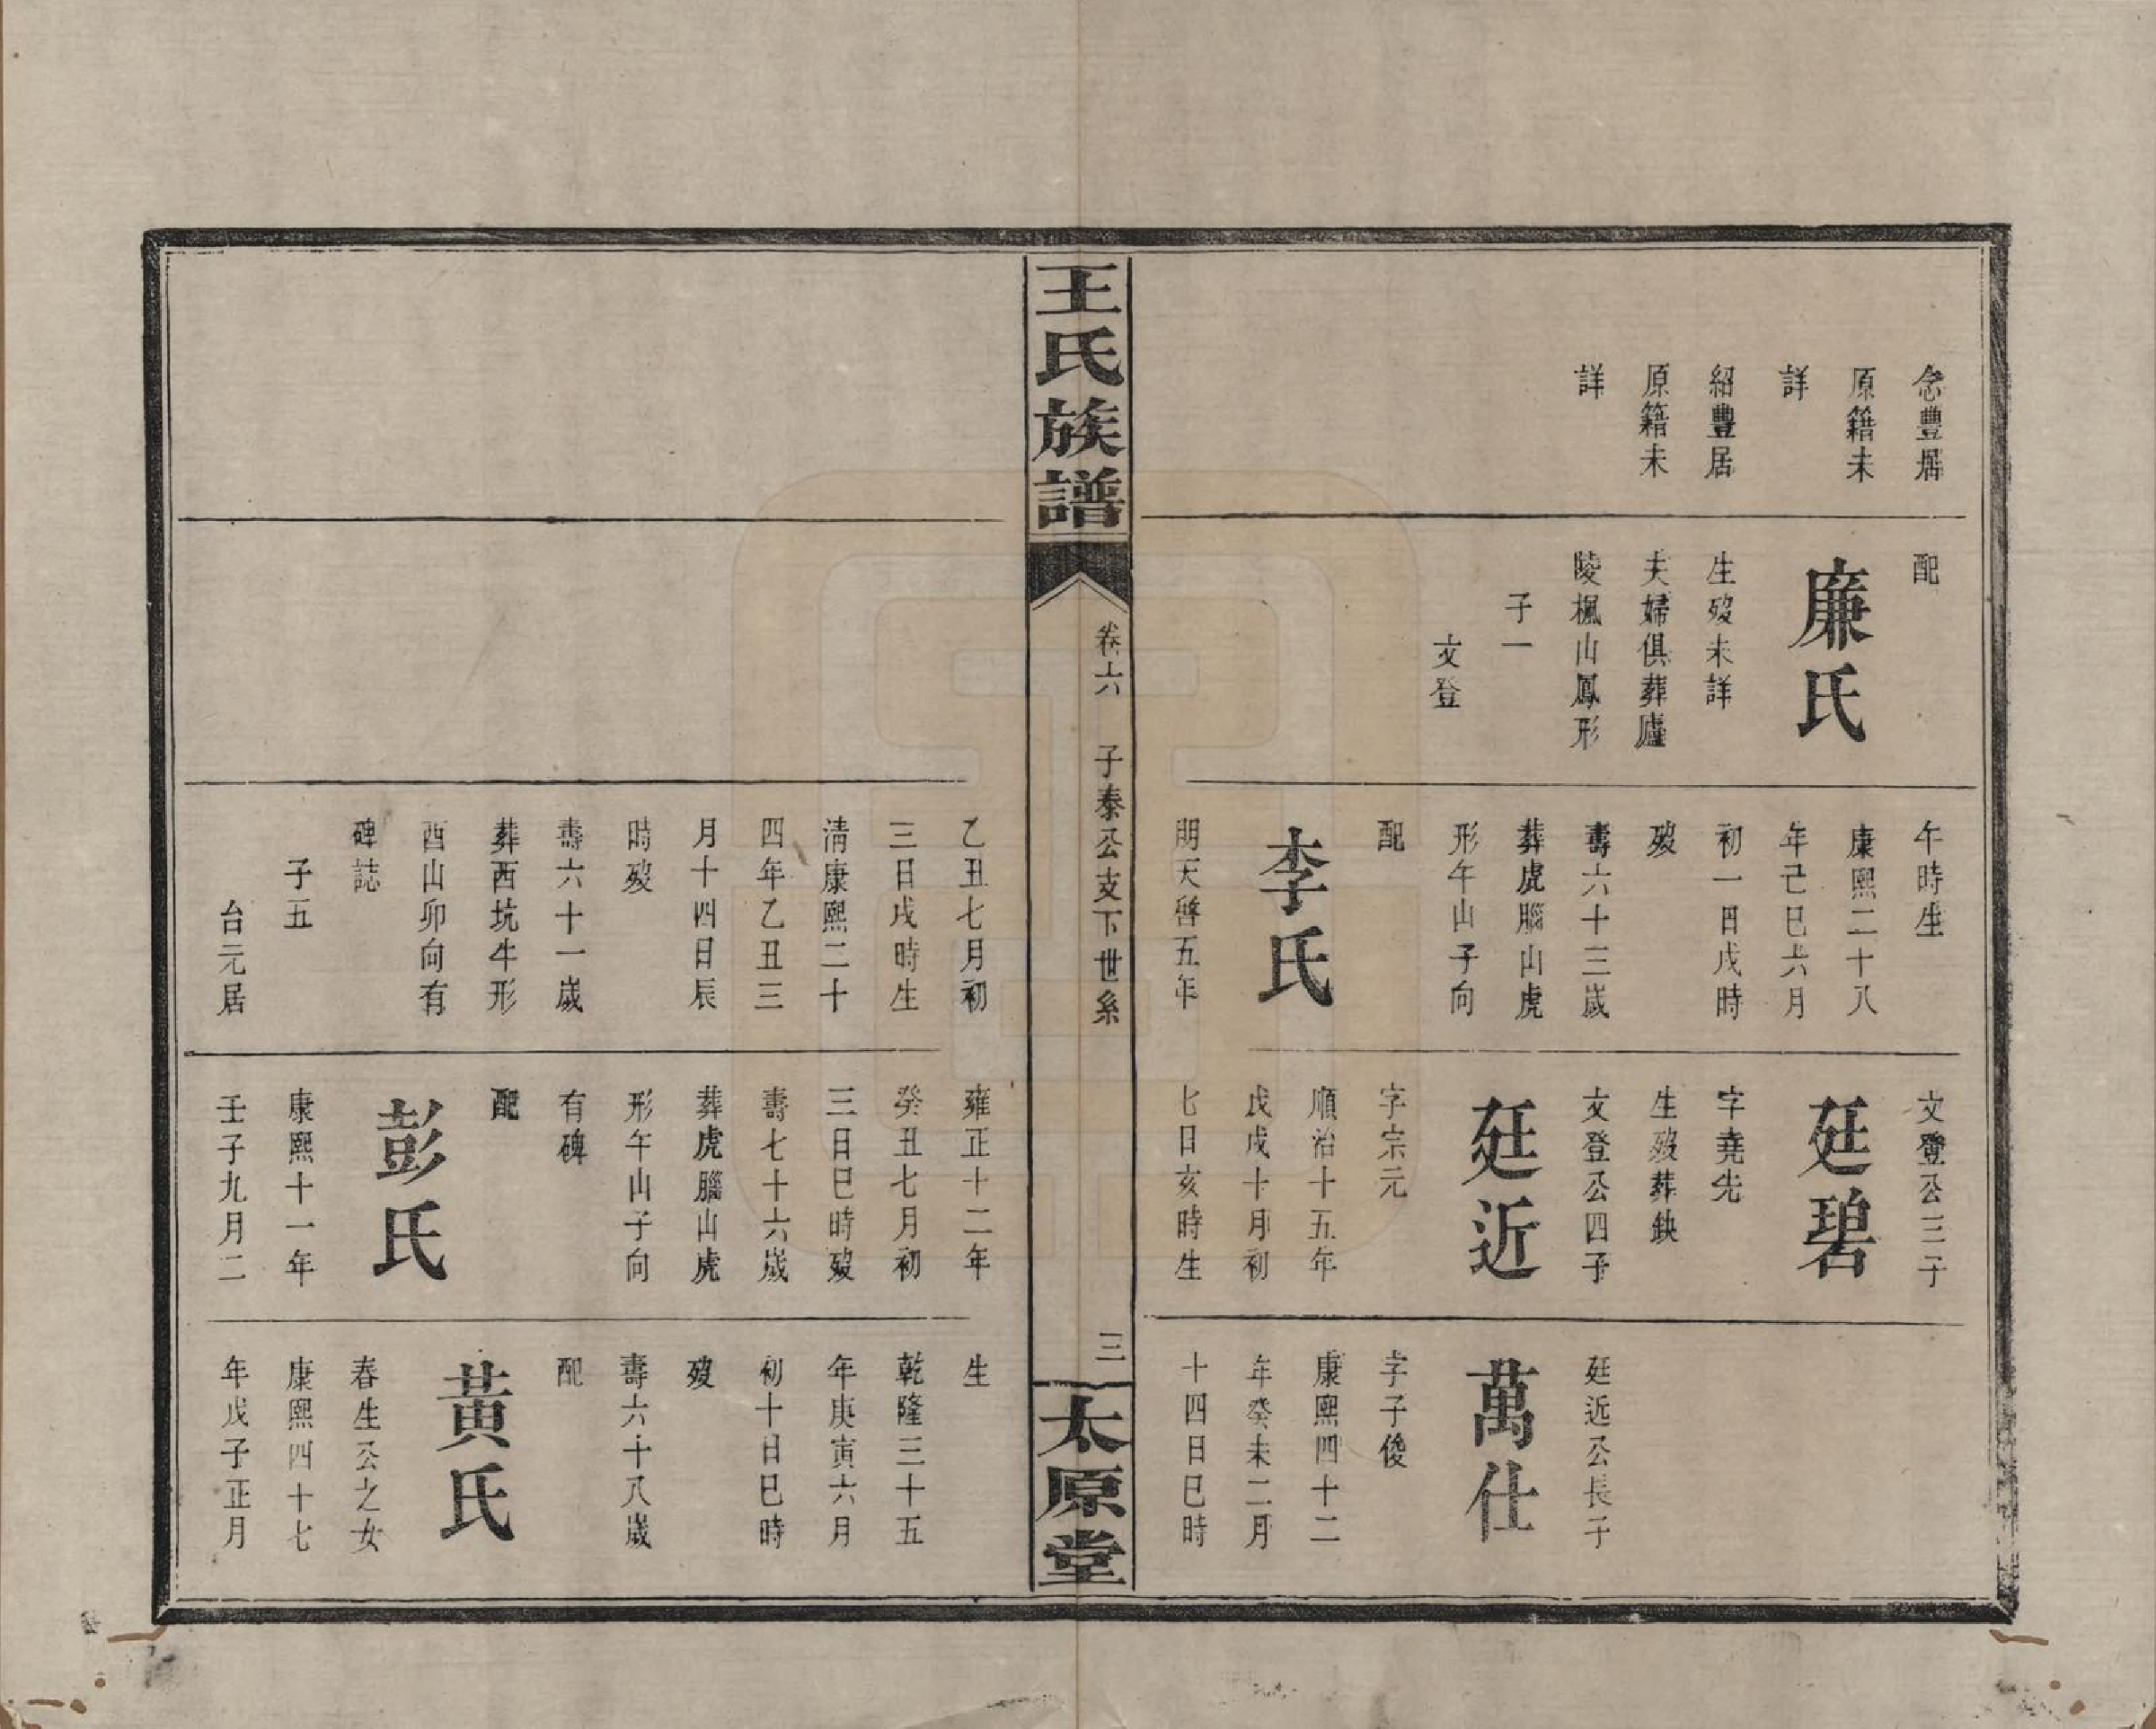 念豐居
原籍未
詳
紹豐居
原籍未
詳
配
廉氏
生歿未詳
夫婦俱葬廬
陵楓山鳳形
子一
文登
午時生
康熙二十八
年己巳六月
初一日戌時
歿
壽六十三歲
葬虎腦山虎
形午山子向
配
李氏
明天啓五年
文登公三子
廷碧
字堯先
生歿葬缺
文登公四子
廷近
字宗元
順治十五年
戊戌十月初
七日亥時生
廷近公長子
萬仕
字子俊
康熙四十二
年癸未二月
十四日巳時
王氏族譜
卷六
子泰公支下世系
三
太原堂
乙丑七月初
三日戌時生
清康熙二十
四年乙丑三
月十四日辰
時歿
壽六十一歲
葬西坑牛形
酉山卯向有
碑誌
子五
台元居
雍正十二年
癸丑七月初
三日巳時歿
壽七十六歲
葬虎腦山虎
形午山子向
有碑
配
彭氏
康熙十一年
壬子九月二
生
乾隆三十五
年庚寅六月
初十日巳時
歿
壽六十八歲
配
黃氏
春生公之女
康熙四十七
年戊子正月